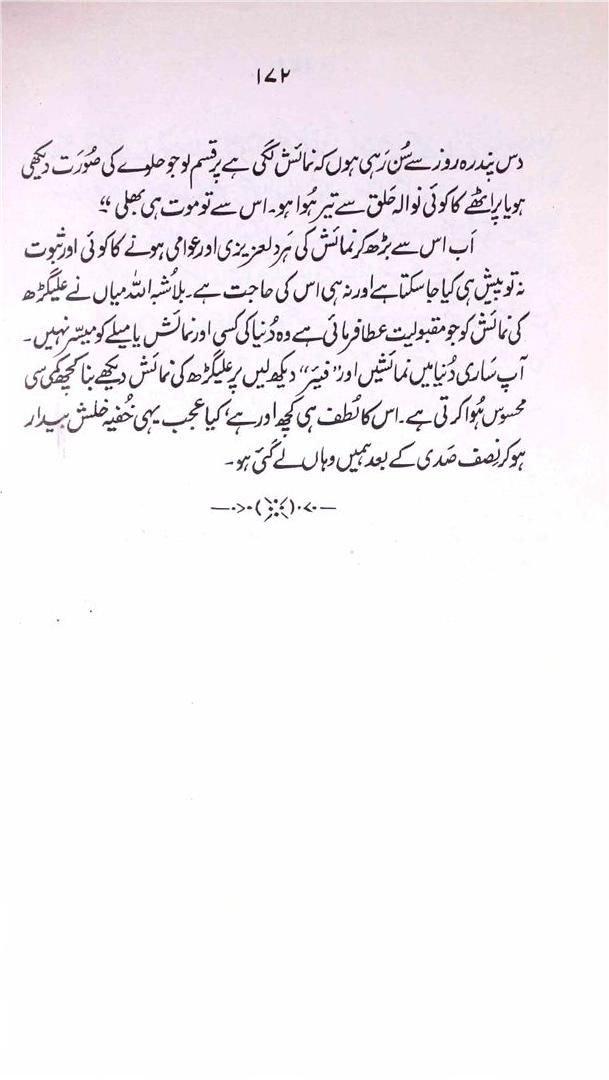 ۱۷۲
دس پندرہ روز سے سُن رَہی ہوں کہ نمائش لگی ہے پر قسم لو جو حلوے کی صُورَت دیکھی
ہو یا پراٹھے کا کوئی نوالہ حَلق سے تیر ہُوا ہو۔ اس سے تو موت ہی بھلی‘‘
اَب اس سے بڑھ کر نمائش کی ہَردلعزیزی اور عوامی ہونے کا کوئی اور ثبوت
نہ تو پیش ہی کیا جا سکتا ہے اور نہ ہی اس کی حاجت ہے۔ بلاشُبہ اللہ میاں نے علیگڑھ
کی نمائش کو جو مقبولیت عطا فرمائی ہے وہ دُنیا کی کسی اور نمائش یا میلے کو میسّر نہیں۔
آپ سَاری دُنیا میں نمائشیں اور ’’فیئر‘‘ دیکھ لیں پر علیگڑھ کی نمائش دیکھے بنا کچھ کمی سی
محسوس ہُوا کرتی ہے۔ اس کا لُطف ہی کچھ اور ہے، کیا عجب یہی خُفیہ خلش بیدار
ہو کر نِصف صَدی کے بعد ہمیں وہاں لے گئی ہو۔